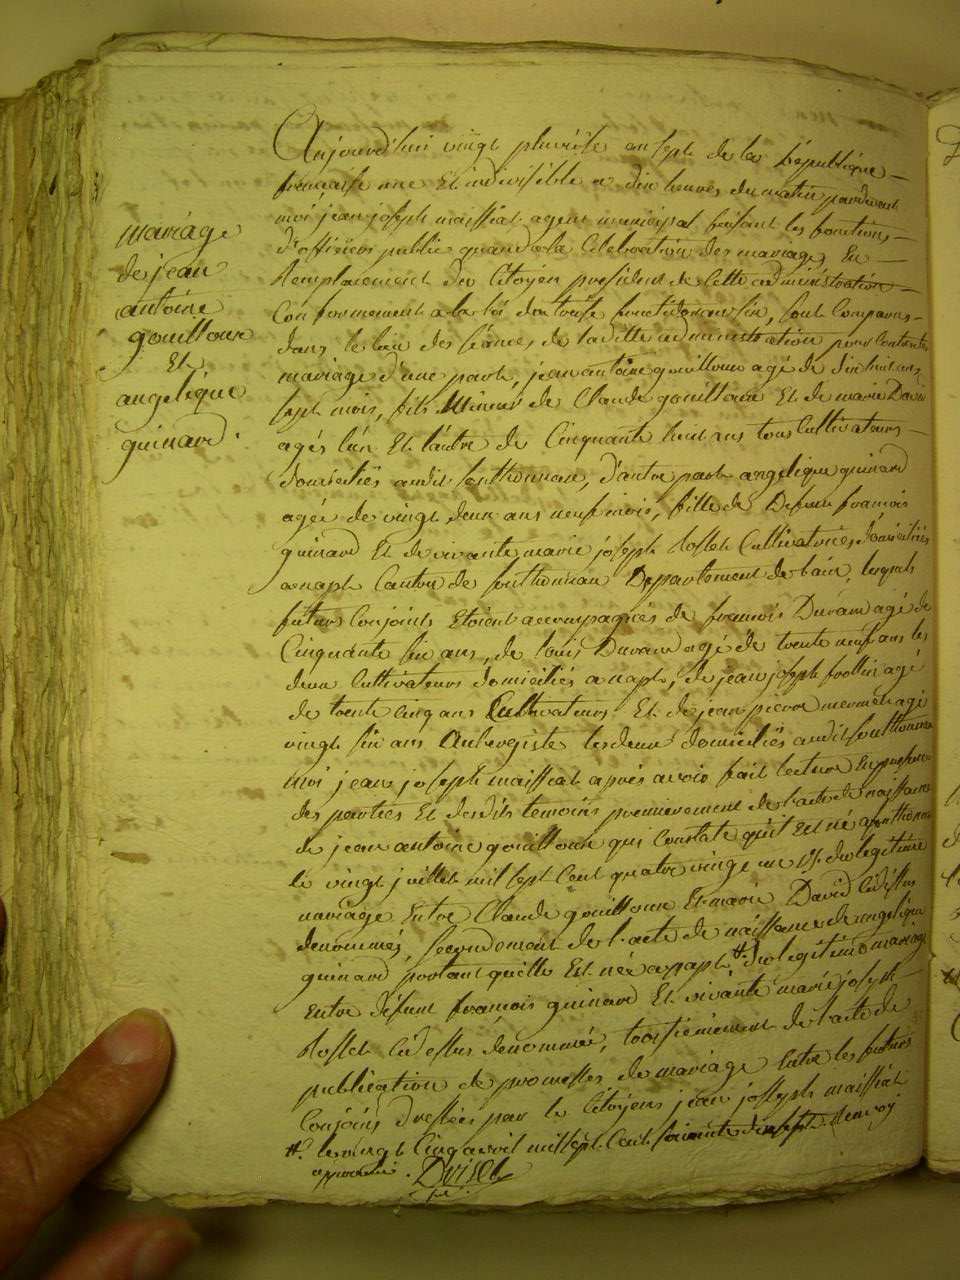 mariage
de jean
antoine
gouilloux
Et
angelique
guinard.
Aujourd'hui vingt pluviôse an sept de la République
francaise une Et indivisible a dix heures du matin pardevant
moi jean joseph maissiat agent municipal faisant les fonctions
d'officier public quand a la Celebration des mariages, En
Remplacement du Citoyen president de Cette administration
Conformement a la loi du treize fructidor an six, sont Comparus
dans le lieu des séances de la ditte administration pour Contracter
mariage d'une part, jean antoine gouilloux agé de dix huit ans
sept mois, fils Mineur de Claude gouilloux Et de marie David
agés l'un Et l'autre de Cinquante huit ans tous Cultivateurs
domiciliés audit southonnax, d'autre part angelique guinard
agée de vingt deux ans neuf mois, fille de Defunt françois
guinard Et de vivante marie joseph Rosset Cultivatrice, domiciliés
a napt Canton de southonnax Departement de l'ain, lesquels
futurs Conjoints Etoient accompagnés de francois Durand agé de
Cinquante six ans, de louis Durand agé de trente neuf ans les
deux Cultivateurs domiciliés a napt, de jean joseph agé
de trente cinq ans Cultivateurs Et de jean pierre mermet agé
vingt six ans Aubergiste les deux domiciliés audit southonnax
moi jean joseph maissiat après avoir fait lecture En presence
des parties Et desdits temoins premierement de l'acte de naissance
de jean antoine gouilloux qui Constate qu'il Est né a southonnax
le vingt juillet mil sept Cent quatre vingt du legitime
mariage Entre Claude gouilloux Et marie David Cidessus
denommés, secondement de l'acte de naissance de angelique
guinard portant qu'elle Est née a napt # du legitime mariage
Entre défunt françois guinard Et vivante marie joseph
Rosset Cidessus denommée, troisiemement de l'acte de
publication de promesses de mariage Entre les futurs
Conjoins dressées par le Citoyens jean joseph maissiat
# le vingt Cinq avril mil sept Cent soixante dix sept Renvoy
approuvé.